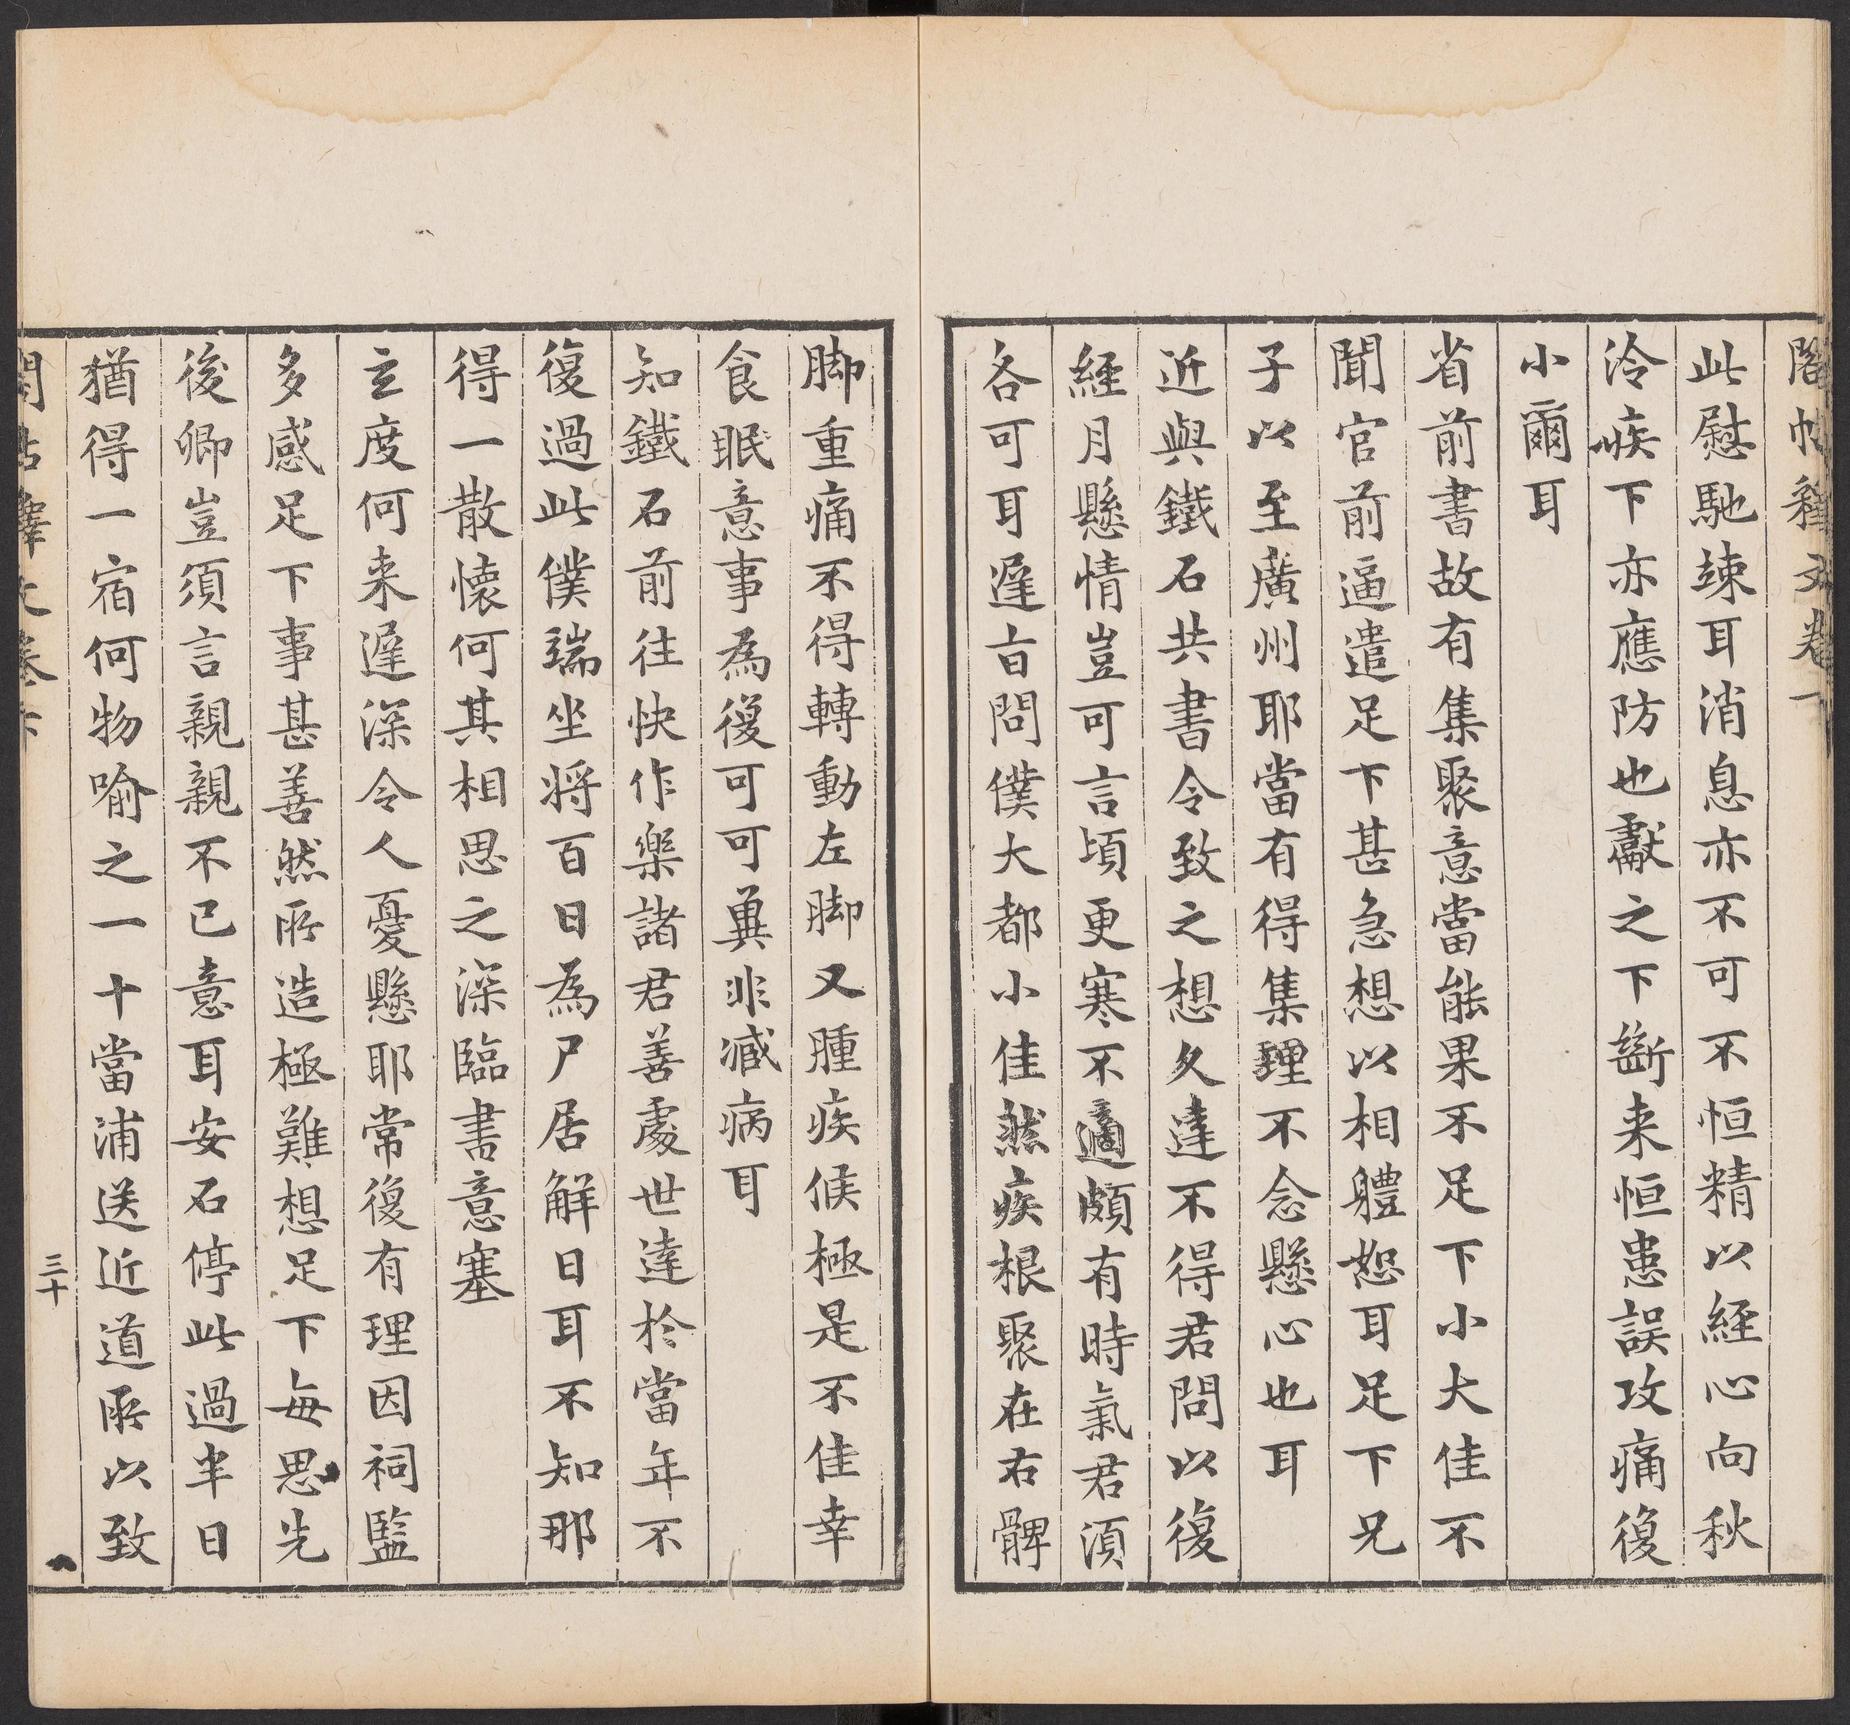 閣帖釋文卷
此慰馳竦耳消息亦不可不恒精以經心向秋
冷疾下亦應防也獻之下斷来恒患誤攻痛復
小爾耳
省前書故有集聚意當能果不足下小大佳不
聞官前逼遣足下甚急想以相軆恕耳足下兄
子以至廣州耶當有得集理不念懸心也耳
近與鐵石共書令致之想久達不得君問以復
經月懸情豈可言頃更寒不適頗有時氣君湏
各可耳遅告問僕大都小佳然疾根聚在右髀
脚重痛不得轉動左脚又腫疾候極是不佳幸
食眠意事為復可可冀非减病耳
知鐵石前往快作樂諸君善處世達於當年不
復過此僕端坐将百日為尸居解日耳不知那
得一散懷何其相思之深臨書意塞
玄度何来遅深令人憂懸耶常復有理因祠監
多感足下事甚善然所造極難想足下每思先
後卿豈須言親親不已意耳安石停此過半日
猶得一宿何物喻之一十當浦送近道所以致
閣帖釋文卷六
三十